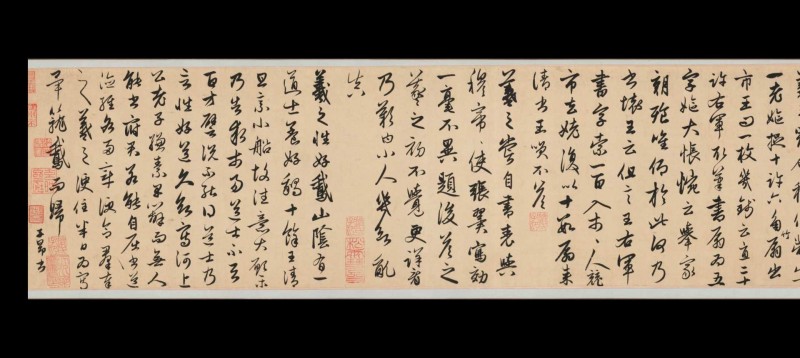 一老姥把十許六角竹扇出
市王問一枚幾錢云直二十
許右軍取筆書扇為五
字姥大悵惋云舉家
朝飡唯仰於此何乃
書壞王云但言王右軍
書字索一百入市市人競
市去姥復以十數扇來
請書王笑不答
羲之嘗自書表與
穆帝帝使張翼寫効
一毫不異題後答之
羲之初不覺更詳看
乃歎曰小人幾欲亂
真
羲之性好鵞山陰有一
道士養好鵞十餘王清
旦乘小船故往意大願樂
乃告求市易道士不與
百方譬說不能得道士乃
言性好道久欲寫河上
公老子縑素早辦而無人
能書府君若能自屈書道
德經各兩章便合羣以奉
之羲之便住半日為寫
畢籠鵞而歸
子昂書